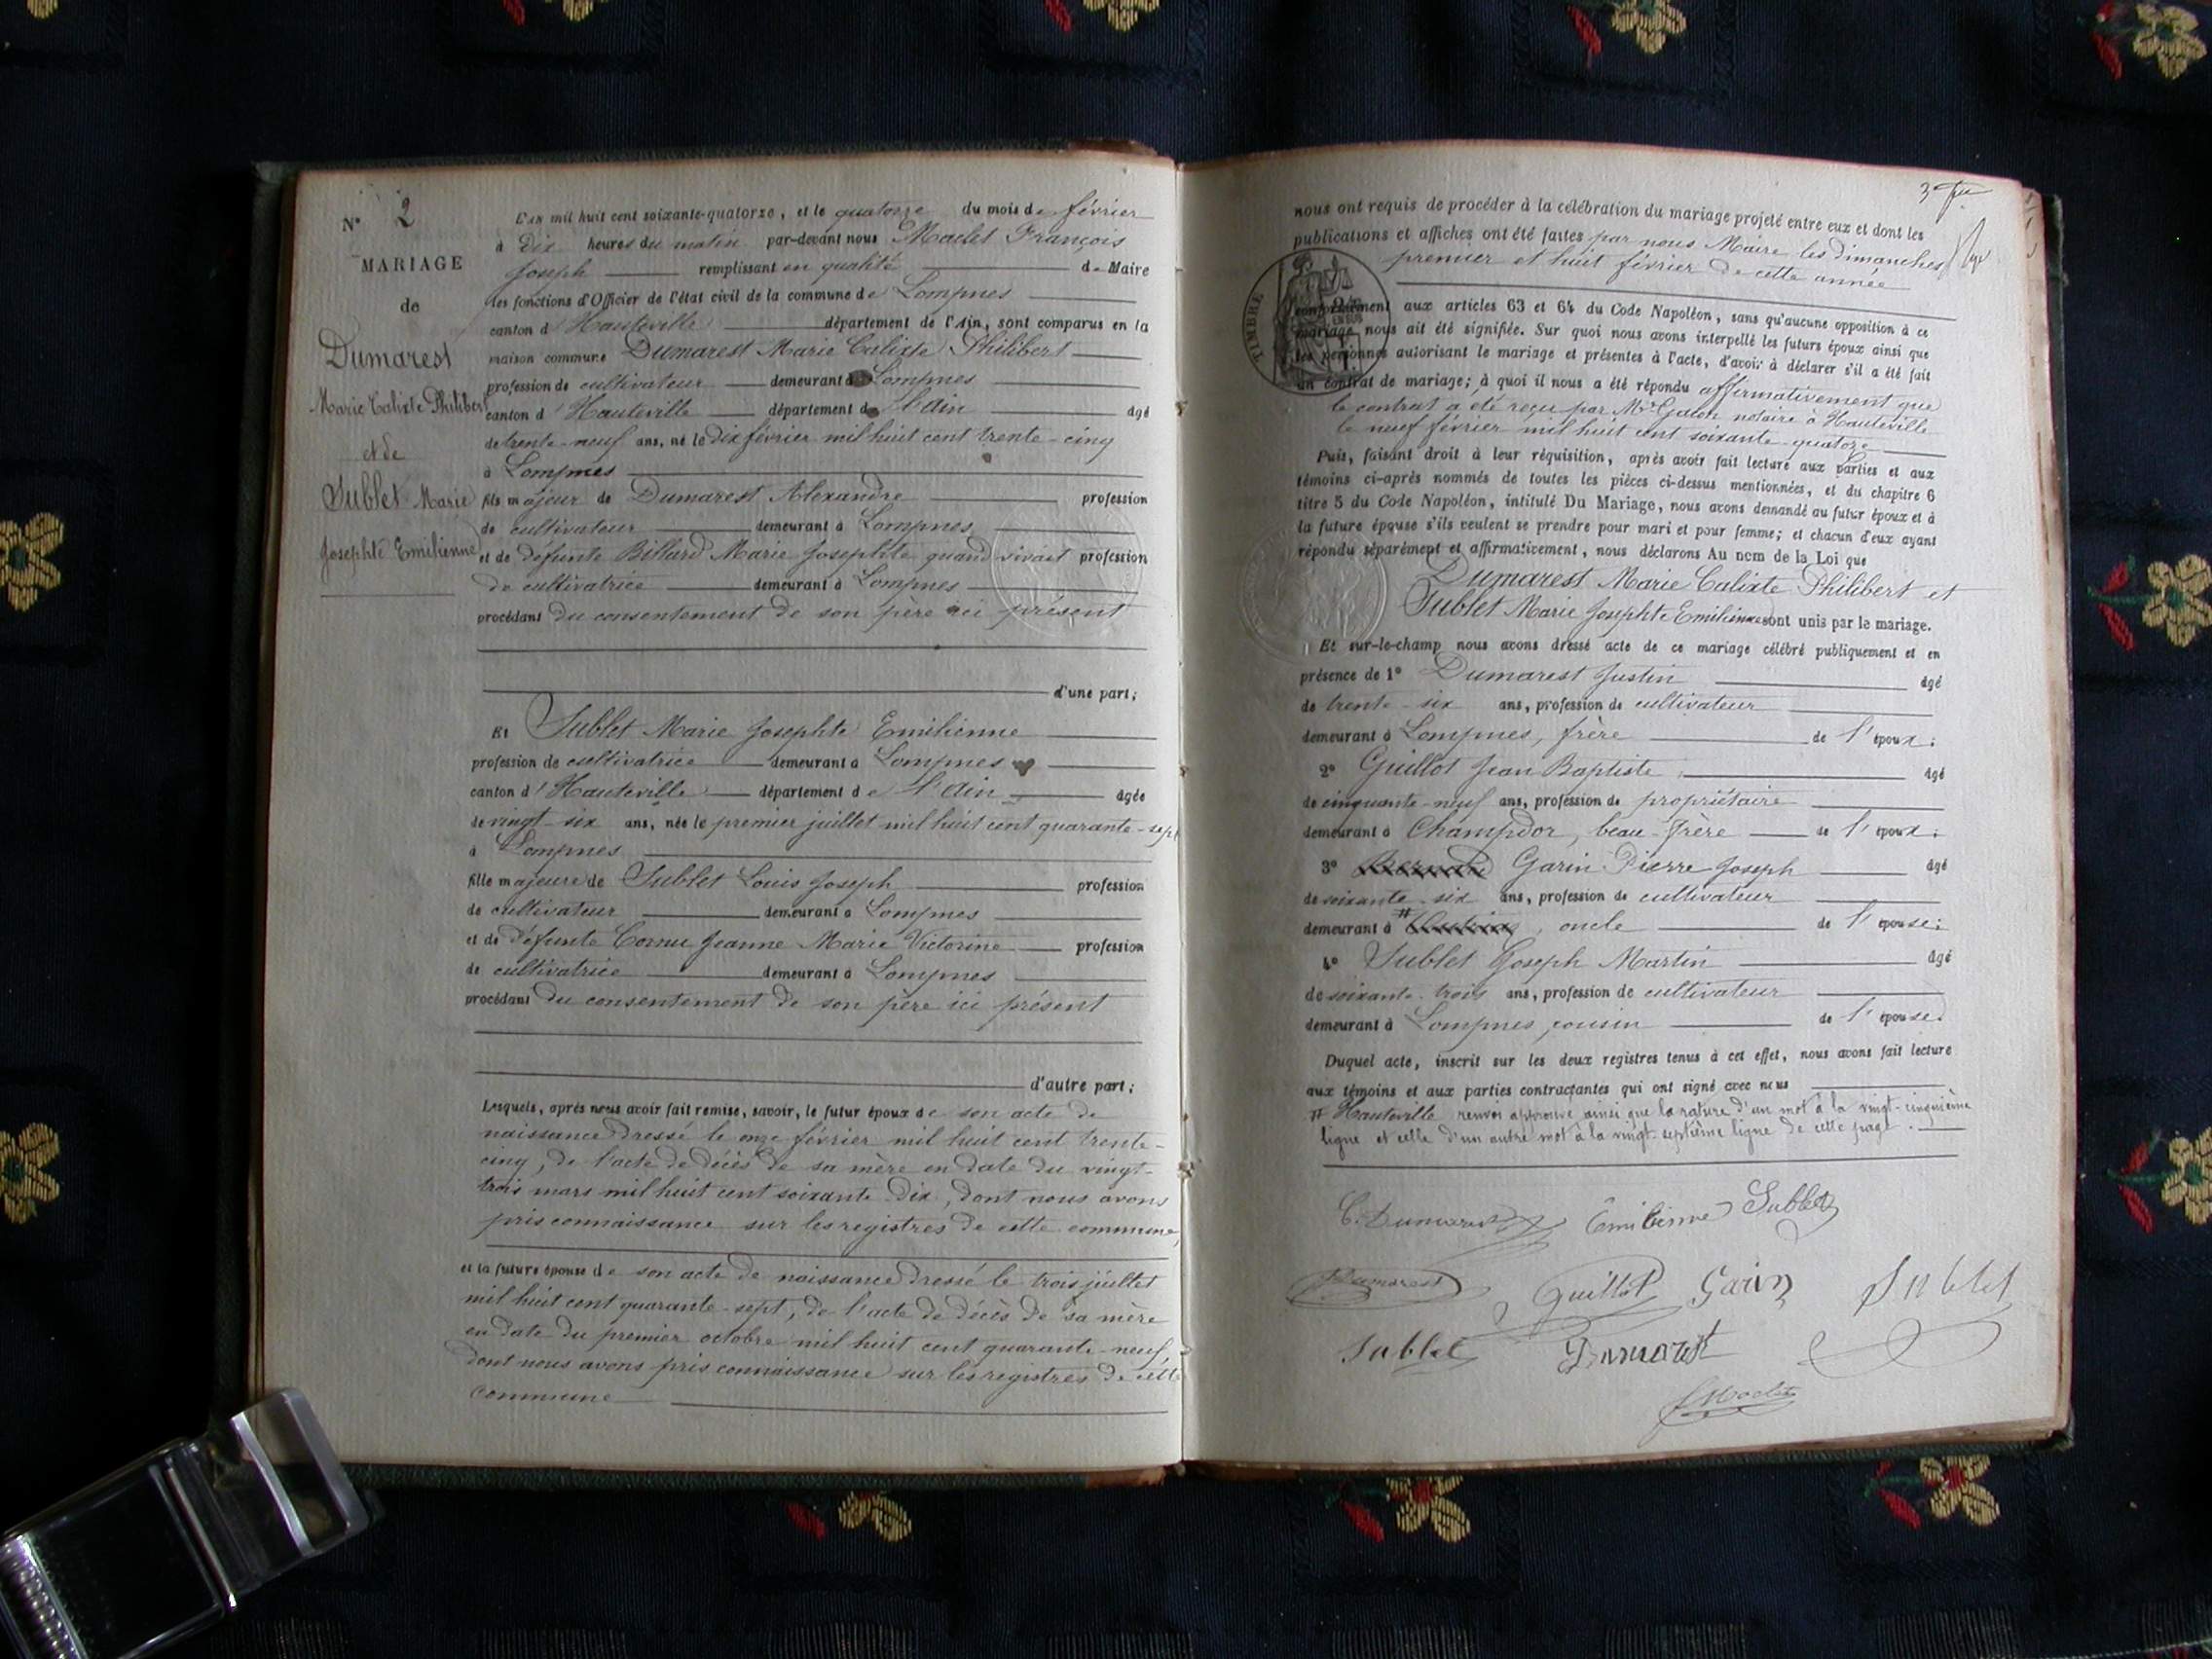 N° 2
MARIAGE
de
Dumarest
Marie Calixte Philibert
et de
Sublet Marie
Josephte Emilienne
L'an mil huit cent soixante-quatorze, et le quatorze du mois de février
à dix heures du matin par-devant nous Maclet François
Joseph remplissant en qualité de Maire
les fonctions d'Officier de l'état civil de la commune de Lompnes
canton d'Hauteville département de l'Ain, sont comparus en la
maison commune Dumarest Marie Calixte Philibert
profession de cultivateur demeurant à Lompnes
canton d'Hauteville département de l'Ain âgé
de trente-neuf ans, né le dix février mil huit cent trente-cinq
à Lompnes
fils majeur de Dumarest Alexandre profession
de cultivateur demeurant à Lompnes
et de defunte Billard Marie Josephte quand vivait profession
de cultivatrice demeurant à Lompnes
procédant du consentement de son père ici présent
d'une part;
Et Sublet Marie Josephte Emilienne
profession de cultivatrice demeurant à Lompnes
canton d'Hauteville département de l'Ain âgée
de vingt-six ans, née le premier juillet mil huit cent quarante-sept
à Lompnes
fille majeure de Sublet Louis Joseph profession
de cultivateur demeurant à Lompnes
et de défunte Cornu Jeanne Marie Victorine profession
de cultivatrice demeurant à Lompnes
procédant du consentement de son père ici présent
d'autre part;
Lesquels, après nous avoir fait remise, savoir, le futur époux de son acte de
naissance dressé le onze février mil huit cent trente-
cinq, de l'acte de décès de sa mère en date du vingt-
trois mars mil huit cent soixante dix, dont nous avons
pris connaissance sur les registres de cette commune,
et la future épouse de son acte de naissance dressé le trois juillet
mil huit cent quarante-sept, de l'acte de décès de sa mère
en date du premier octobre mil huit cent quarante-neuf,
dont nous avons pris connaissance sur les registres de cette
commune
3
nous ont requis de procéder à la célébration du mariage projeté entre eux et dont les
publications et affiches ont été faites par nous Maire les dimanches
premier et huit février de cette année
TIMBRE
conformément aux articles 63 et 64 du Code Napoléon, sans qu'aucune opposition à ce
mariage nous ait été signifiée. Sur quoi nous avons interpellé les futurs époux ainsi que
les personnes autorisant le mariage et présentes à l'acte, d'avoir à déclarer s'il a été fait
un contrat de mariage; à quoi il nous a été répondu affirmativement que
le contrat a été reçu par Me notaire à Hauteville
le neuf février mil huit cent soixante-quatorze
Puis, faisant droit à leur réquisition, après avoir fait lecture aux parties et aux
témoins ci-après nommés de toutes les pièces ci-dessus mentionnées, et du chapitre 6
titre 5 du Code Napoléon, intitulé Du Mariage, nous avons demandé au futur époux et à
la future épouse s'ils veulent se prendre pour mari et pour femme; et chacun d'eux ayant
répondu séparément et affirmativement, nous déclarons Au nom de la Loi que
Dumarest Marie Calixte Philibert et
Sublet Marie Josephte Emilienne sont unis par le mariage.
Et sur-le-champ nous avons dressé acte de ce mariage célébré publiquement et en
présence de 1° Dumarest Justin âgé
de trente-six ans, profession de cultivateur
demeurant à Lompnes, frère de l'époux:
2° Guillot Jean Baptiste âgé
de cinquante-neuf ans, profession de propriétaire
demeurant à Champdor, beau-frère de l'époux:
3° Garin Pierre Joseph âgé
de soixante-six ans, profession de cultivateur
demeurant à #, oncle de l'épouse:
4° Sublet Joseph Martin âgé
de soixante-trois ans, profession de cultivateur
demeurant à Lompnes, cousin de l'épouse.
Duquel acte, inscrit sur les deux registres tenus à cet effet, nous avons fait lecture
aux témoins et aux parties contractantes qui ont signé avec nous
# Hauteville renvoi approuvé ainsi que la rature d'un mot à la vingt-cinquième
ligne et celle d'un autre mot à la vingt-septième ligne de cette page.
C. Dumarest Emilienne Sublet
Dumarest Guillot Garin Sublet
Sublet Dumarest
Maclet